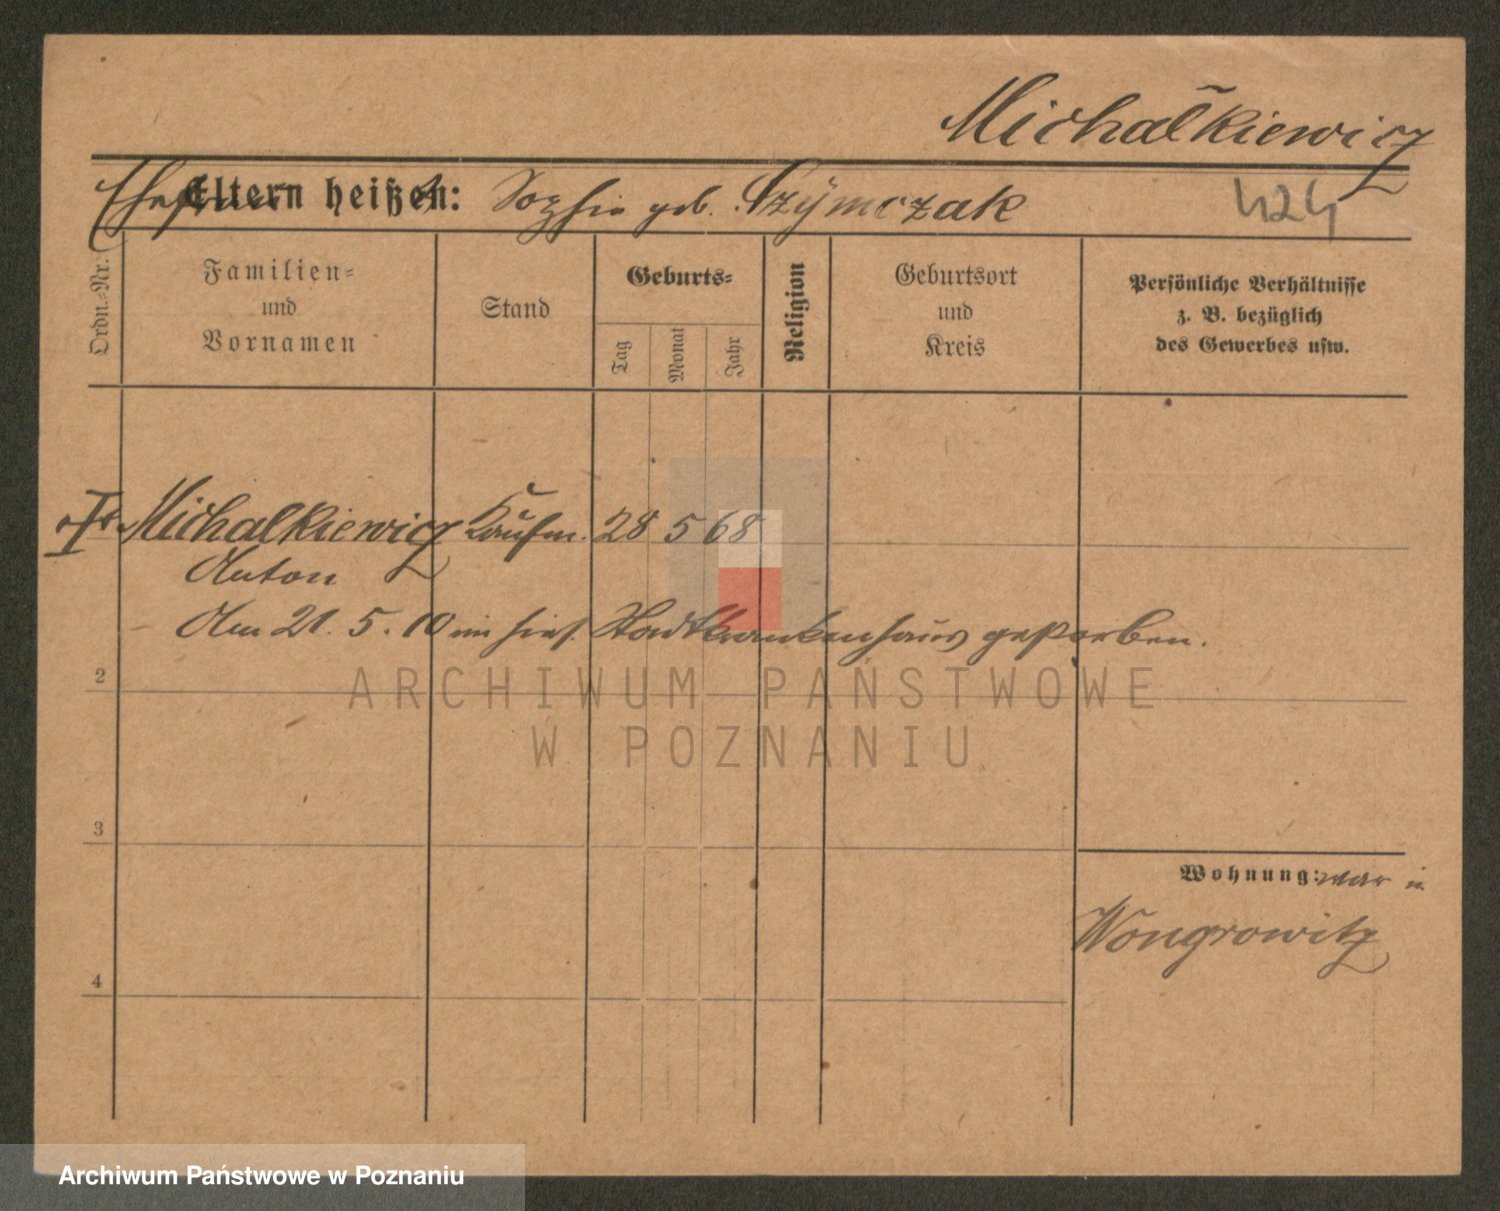 Michalkiewicz
Ehefrau Eltern heißen: Sophie geb. Szymczak 424
Ordn.-Nr.
Familien-
und
Vornamen
Stand
Geburts-
Tag
Monat
Jahr
Religion
Geburtsort
und
Kreis
Persönliche Verhältnisse
z. B. bezüglich
des Gewerbes usw.
Michalkiewicz Kaufm. 28 5 68
Anton
Am 21. 5. 10 im hies. Stadtkrankenhaus gestorben.
2
ARCHIWUM PAŃSTWOWE
W POZNANIU
3
Wohnung: war in
Wongrowitz
4
Archiwum Państwowe w Poznaniu